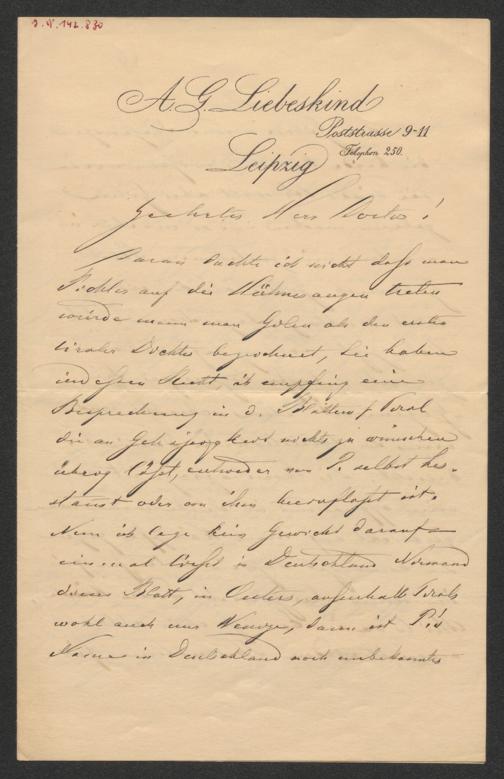 I.N. 142.830
A. G. Liebeskind
Poststrasse 9-11
Telephon 250.
Leipzig
Geehrter Herr Doctor!
Daran dachte ich nicht dass man
Pichler auf die Hühneraugen treten
würde wenn man Gilm als den ersten
tiroler Dichter bezeichnet, Sie haben
indessen Recht, ich empfing eine
Besprechung in d. Blättern f Tirol
die an Gehässigkeit nichts zu wünschen
übrig lässt, entweder von P. selbst her-
stamt oder von ihm beeinflusst ist.
Nun ich lege kein Gewicht darauf
einmal liest in Deutschland Niemand
dieses Blatt, in Oesterr. ausserhalb Tirols
wohl auch nur Wenige, dann ist P.'s
Name in Deutschland noch unbekannter